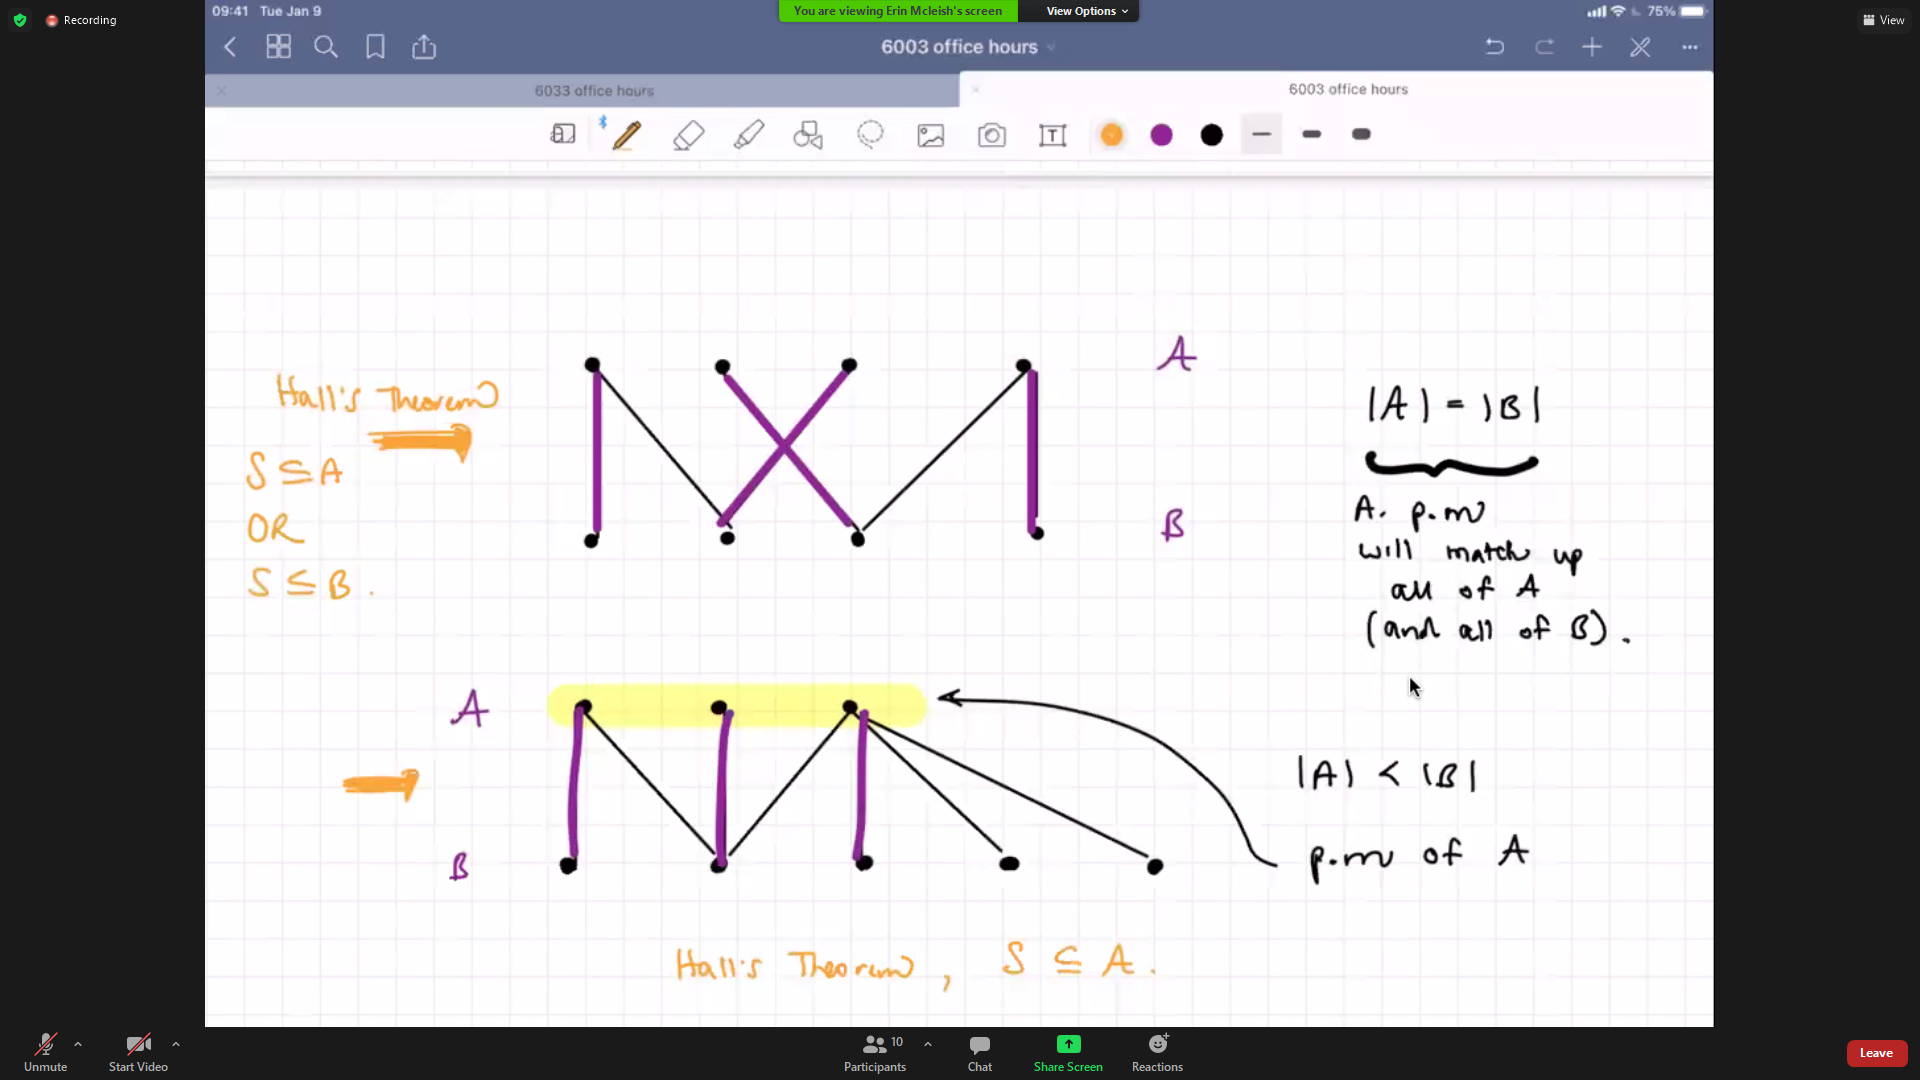 Recording
09:41 Tue Jan 9
You are viewing Erin Mcleish's screen
View Options
75%
View
6003 office hours
6033 office hours
6003 office hours
T
A
Hall's Theorem
|A| = |B|
S ⊆ A
OR
B
A. p.m
will match up
all of A
(and all of B).
S ⊆ B.
A
|A| < |B|
B
p.m of A
Hall's Theorem, S ⊆ A.
Unmute
Start Video
Participants
10
Chat
Share Screen
Reactions
Leave